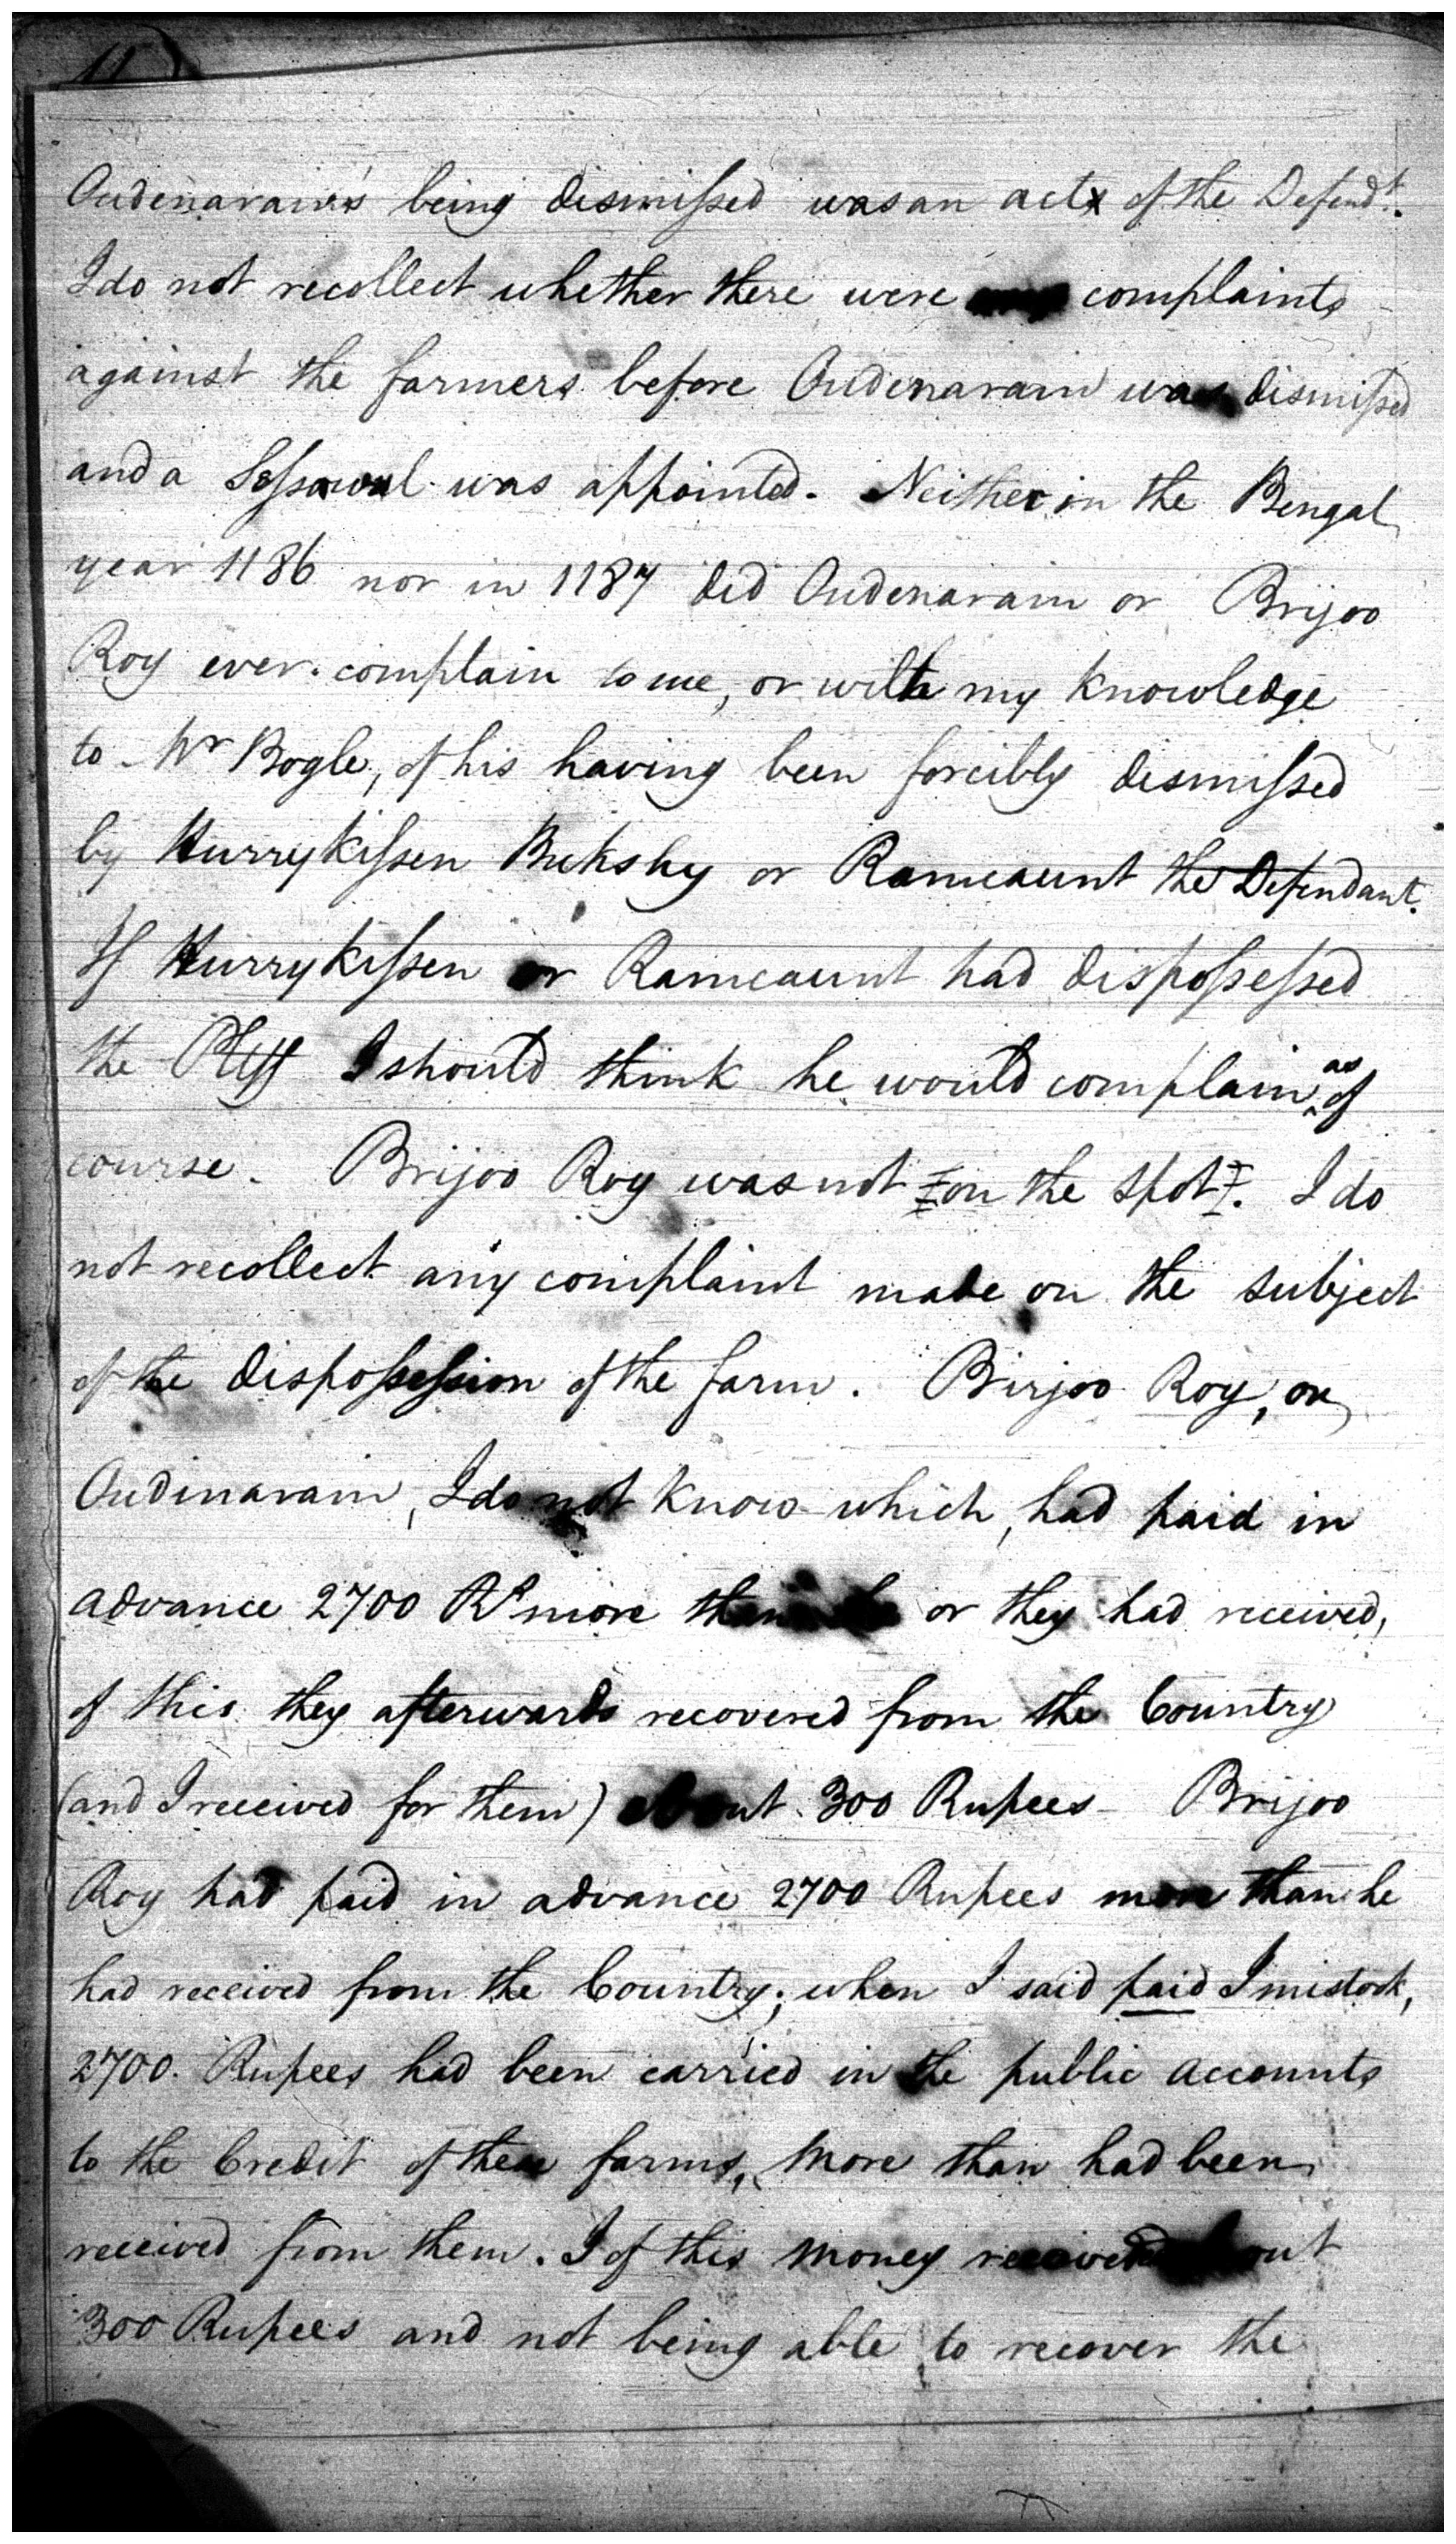 Oudenarain's being dismissed was an act of the Defend.t
I do not recollect whether there were complaints
against the farmers before Oudenarain was dismissed
and a Sessawul was appointed. Neither in the Bengal
year 1186 nor in 1187 did Oudenarain or Brijoo
Roy ever complain to me, or with my knowledge
to Mr Bogle, of his having been forcibly dismissed
by Hurrykissen Bukshy or Ramcaunt the Defendant.
If Hurrykissen or Ramcaunt had dispossessed
the Plff I should think he would complain as of
course. Brijoo Roy was not on the spot. I do
not recollect any complaint made on the subject
of the dispossession of the farm. Birjoo Roy, or
Oudinarain, I do not know which, had paid in
advance 2700 Rs more than he or they had received,
of this they afterwards recovered from the Country
(and I received for them) about 300 Rupees Brijoo
Roy had paid in advance 2700 Rupees more than he
had received from the Country; when I said paid I mistook,
2700. Rupees had been carried in the public accounts
to the Credit of these farms, more than had been
received from them. I of this money received about
300 Rupees and not being able to recover the